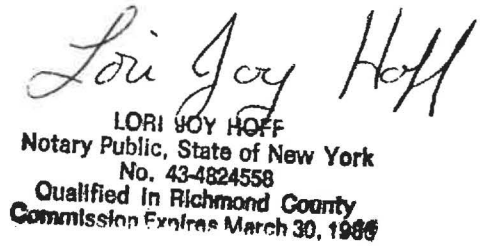 Lori Joy Hoff
LORI JOY HOFF
Notary Public, State of New York
No. 43-4824558
Qualified in Richmond County
Commission Expires March 30,